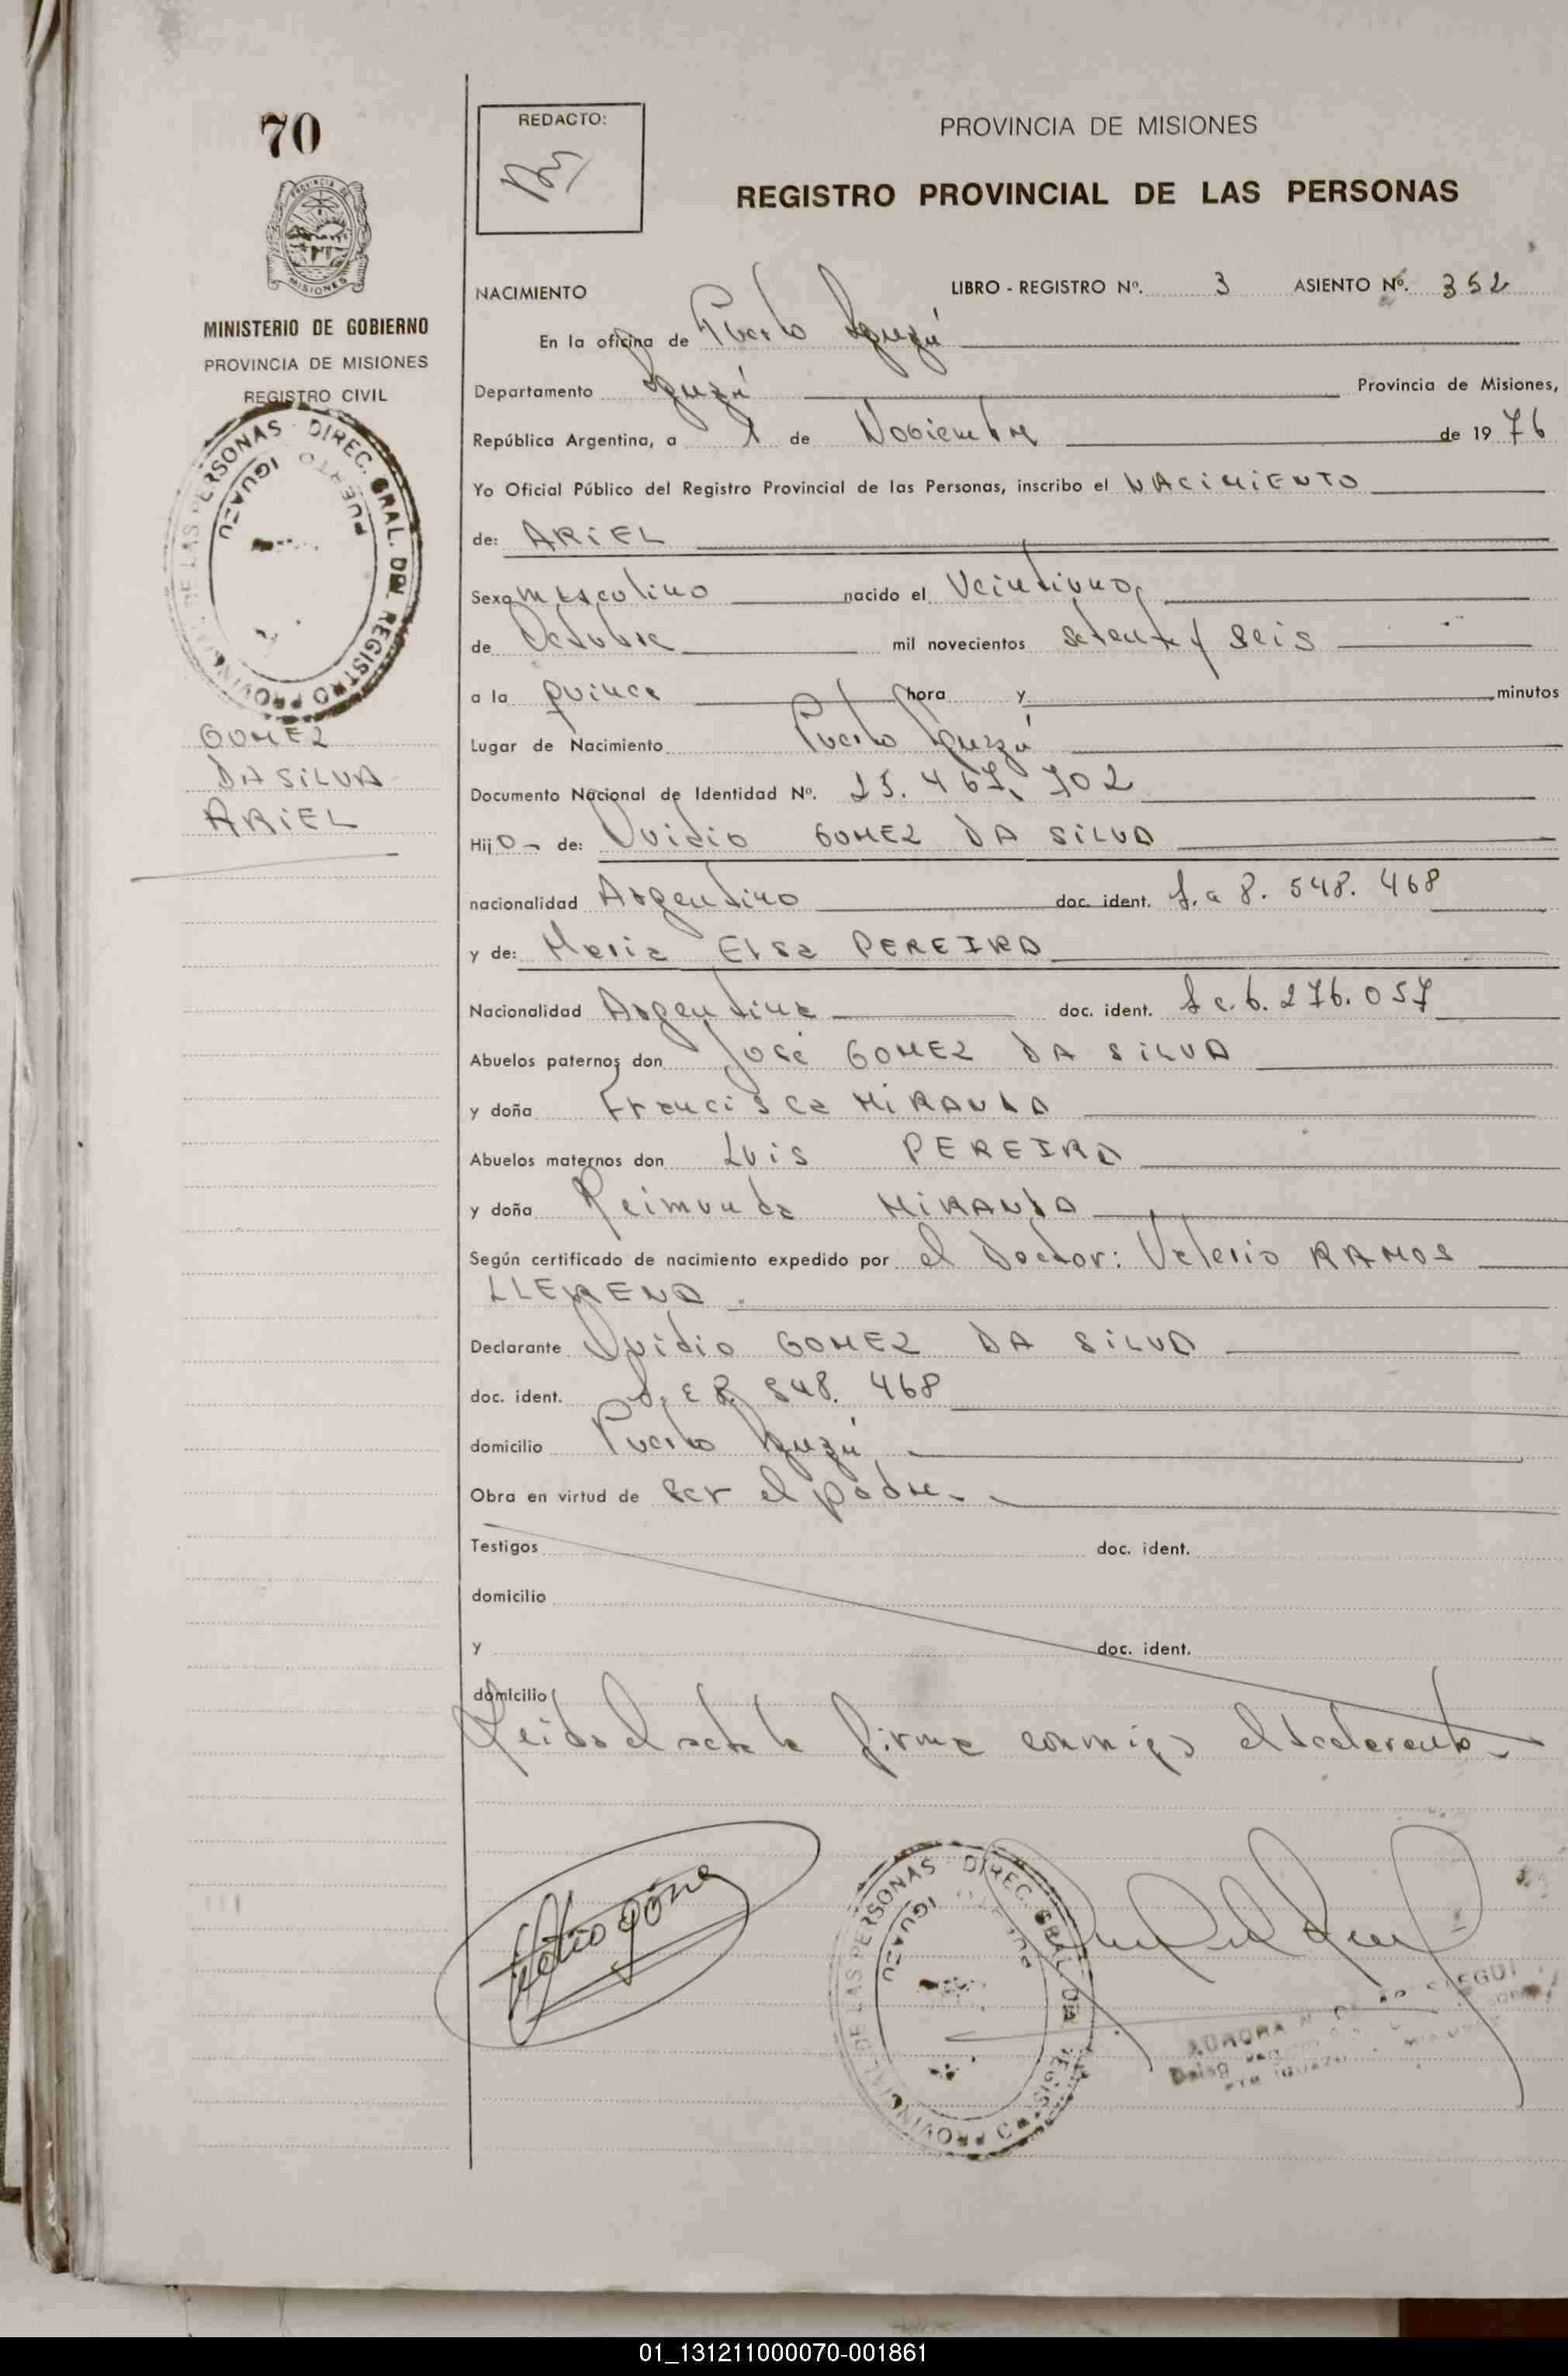 70
REDACTO:
PROVINCIA DE MISIONES
REGISTRO PROVINCIAL DE LAS PERSONAS
PROVINCIA DE
MISIONES
MINISTERIO DE GOBIERNO
PROVINCIA DE MISIONES
REGISTRO CIVIL
DIREC. GRAL. DEL REGISTRO PROVINCIAL DE LAS PERSONAS
PUERTO IGUAZU
GOMEZ
DA SILVA
ARIEL
NACIMIENTO LIBRO - REGISTRO Nº. 3 ASIENTO Nº. 352
En la oficina de Puerto Iguazú
Departamento Iguazú Provincia de Misiones,
República Argentina, a 1 de Noviembre de 1976
Yo Oficial Público del Registro Provincial de las Personas, inscribo el NACIMIENTO
de: ARIEL
Sexo masculino nacido el Veintiuno
de Octubre mil novecientos setenta y seis
a la quince hora y minutos
Lugar de Nacimiento Puerto Iguazú
Documento Nacional de Identidad Nº. 25.467.702
Hijo de: Ovidio GOMEZ DA SILVA
nacionalidad Argentino doc. ident. L.e 8.548.468
y de: Maria Elsa PEREIRA
Nacionalidad Argentina doc. ident. L c. 6.276.057
Abuelos paternos don José GOMEZ DA SILVA
y doña Francisca MIRANDA
Abuelos maternos don Luis PEREIRA
y doña Reimunda MIRANDA
Según certificado de nacimiento expedido por el Doctor: Valerio RAMOS
LLERENA.
Declarante Ovidio GOMEZ DA SILVA
doc. ident. L.E 8.548.468
domicilio Puerto Iguazú
Obra en virtud de ser el padre.
Testigos doc. ident.
domicilio
y doc. ident.
domicilio
Leida el acta la firma conmigo el declarante.
DIREC. GRAL. DEL REGISTRO PROVINCIAL DE LAS PERSONAS
PUERTO IGUAZU
AURORA
PTO IGUAZU
01_131211000070-001861